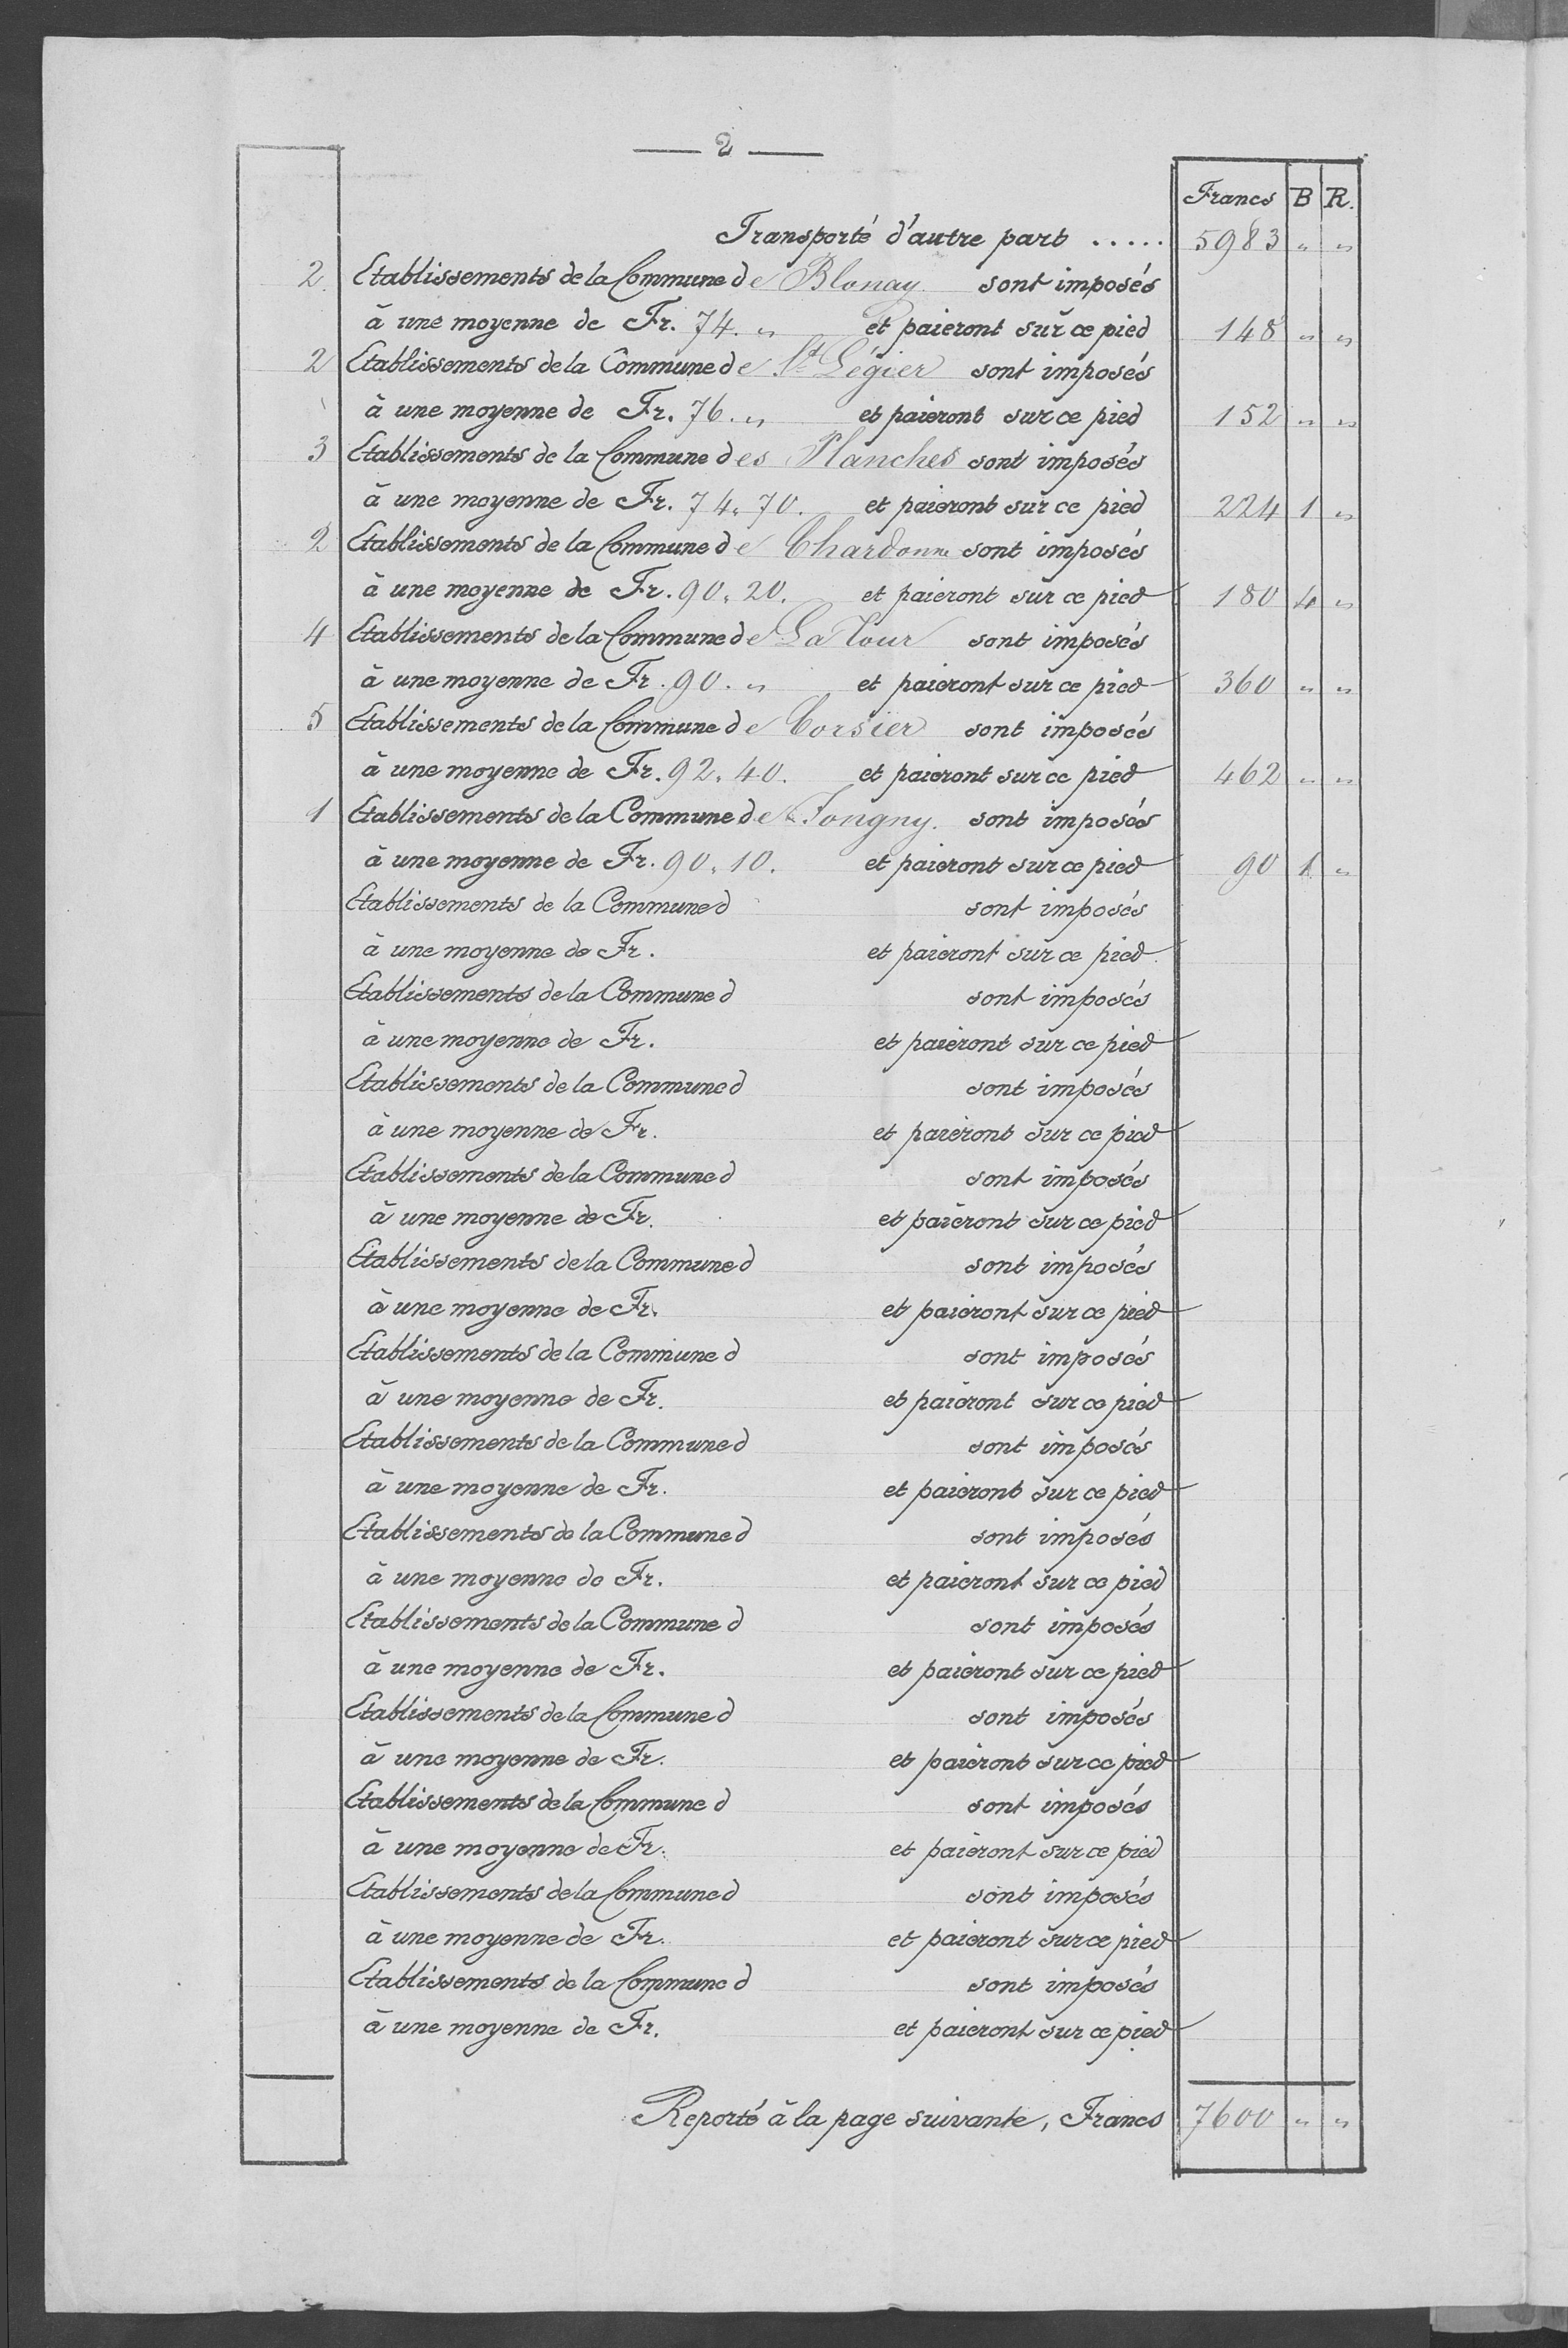 — 2 —
Francs B R.
Transporté d'autre part ..... 5983 " "
2. Etablissements de la Commune de Blonay sont imposés
à une moyenne de Fr. 74. " et paieront sur ce pied 148 " "
2 Etablissements de la Commune de St Légier sont imposés
à une moyenne de Fr. 76. " et paieront sur ce pied 152 " "
3 Etablissements de la Commune des Planches sont imposés
à une moyenne de Fr. 74. 70. et paieront sur ce pied 224 1 "
2 Etablissements de la Commune de Chardonne sont imposés
à une moyenne de Fr. 90. 20. et paieront sur ce pied 180 4 "
4 Etablissements de la Commune de La Tour sont imposés
à une moyenne de Fr. 90. " et paieront sur ce pied 360 " "
5 Etablissements de la Commune de Corsier sont imposés
à une moyenne de Fr. 92. 40. et paieront sur ce pied 462 " "
1 Etablissements de la Commune de Jongny. sont imposés
à une moyenne de Fr. 90. 10. et paieront sur ce pied 90 1 "
Etablissements de la Commune d sont imposés
à une moyenne de Fr. et paieront sur ce pied
Etablissements de la Commune d sont imposés
à une moyenne de Fr. et paieront sur ce pied
Etablissements de la Commune d sont imposés
à une moyenne de Fr. et paieront sur ce pied
Etablissements de la Commune d sont imposés
à une moyenne de Fr. et paieront sur ce pied
Etablissements de la Commune d sont imposés
à une moyenne de Fr. et paieront sur ce pied
Etablissements de la Commune d sont imposés
à une moyenne de Fr. et paieront sur ce pied
Etablissements de la Commune d sont imposés
à une moyenne de Fr. et paieront sur ce pied
Etablissements de la Commune d sont imposés
à une moyenne de Fr. et paieront sur ce pied
Etablissements de la Commune d sont imposés
à une moyenne de Fr. et paieront sur ce pied
Etablissements de la Commune d sont imposés
à une moyenne de Fr. et paieront sur ce pied
Etablissements de la Commune d sont imposés
à une moyenne de Fr. et paieront sur ce pied
Etablissements de la Commune d sont imposés
à une moyenne de Fr. et paieront sur ce pied
Etablissements de la Commune d sont imposés
à une moyenne de Fr. et paieront sur ce pied
Reporté à la page suivante, Francs 7600 " "